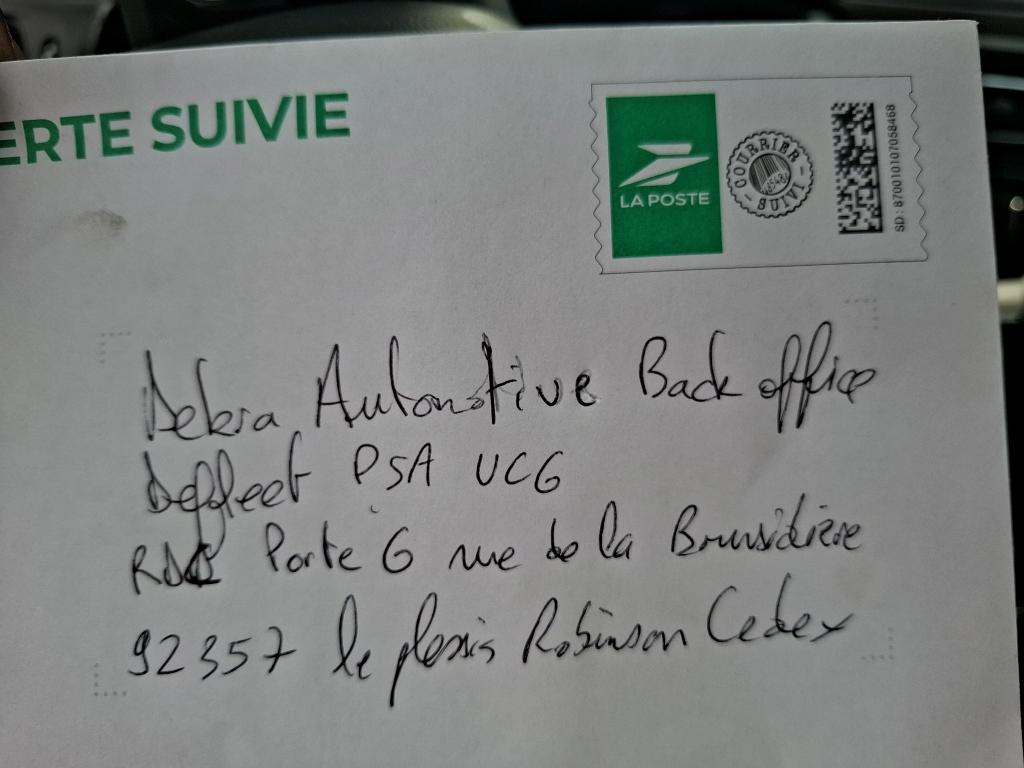 ERTE SUIVIE
LA POSTE
COURRIER SUIVI
SD : 87001010705846B
Dekra Automotive Back office
Deffleet PSA UCG
RDC Porte G rue de la Brunsidière
92357 le plessis Robinson Cedex